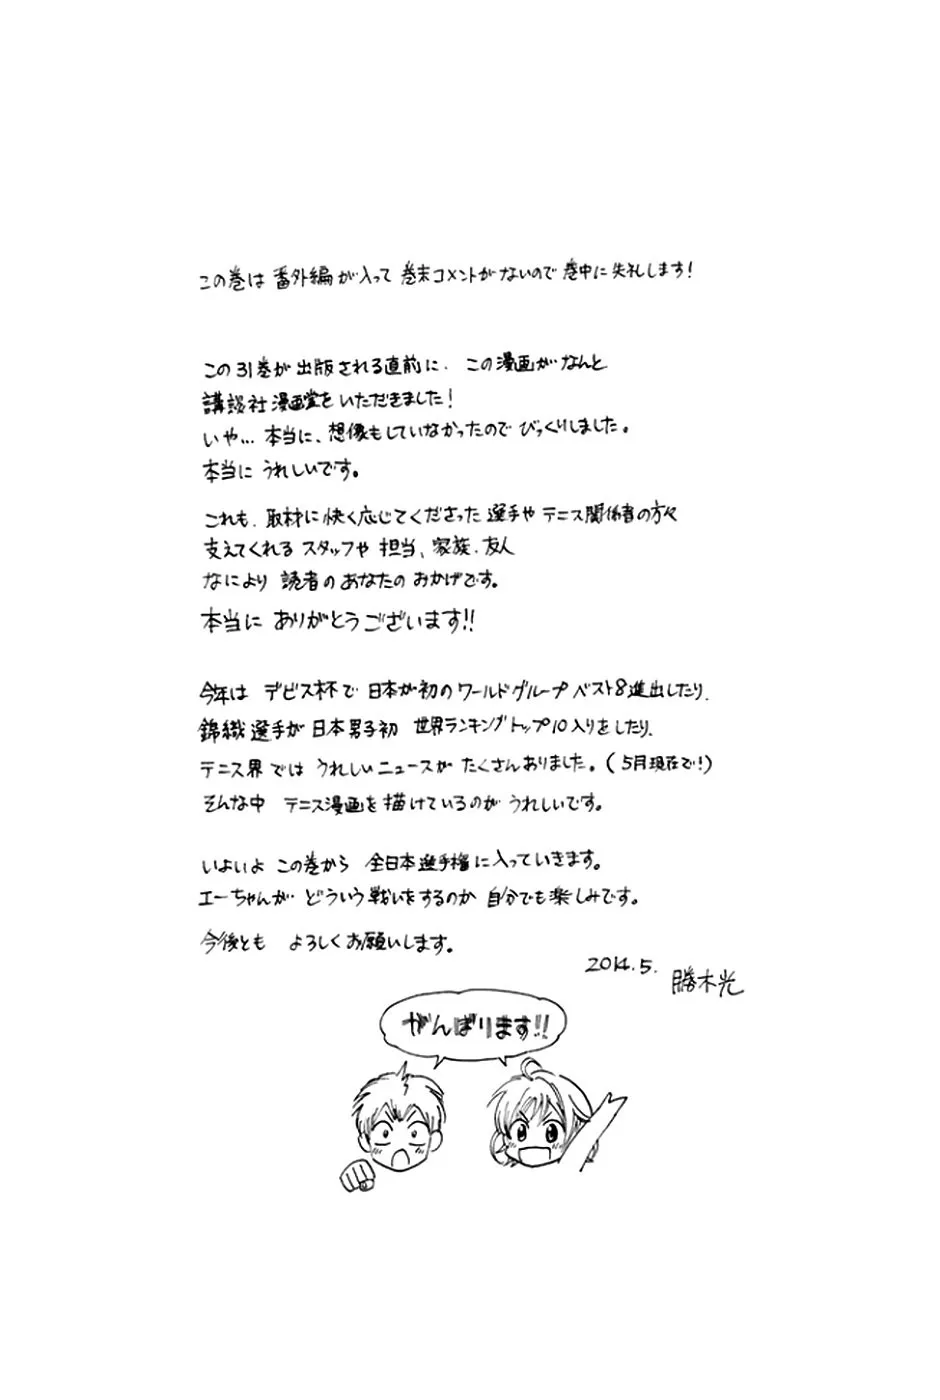 この巻は 番外編が入って 巻末コメントがないので 巻中に失礼します!
この31巻が出版される直前に、この漫画がなんと
講談社漫画賞をいただきました!
いや… 本当に、想像もしていなかったので びっくりしました。
本当に うれしいです。
これも、取材に快く応じてくださった 選手や テニス関係者の方々
支えてくれる スタッフや 担当、家族、友人
なにより 読者の あなたの おかげです。
本当に ありがとうございます!!
今年は デビス杯で 日本が初のワールドグループ ベスト8進出したり、
錦織選手が日本男子初 世界ランキングトップ10入りをしたり、
テニス界では うれしいニュースが たくさんありました。(5月現在で!)
そんな中 テニス漫画を描けているのが うれしいです。
いよいよ この巻から 全日本選手権に入っていきます。
エーちゃんが どういう戦いをするのか 自分でも楽しみです。
今後とも よろしくお願いします。
2014.5.
勝木光
がんばります!!